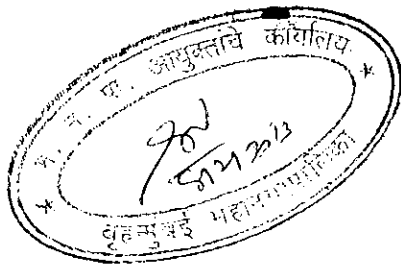 म. न. पा. आयुक्तांचे कार्यालय
बृहन्मुंबई महानगरपालिका